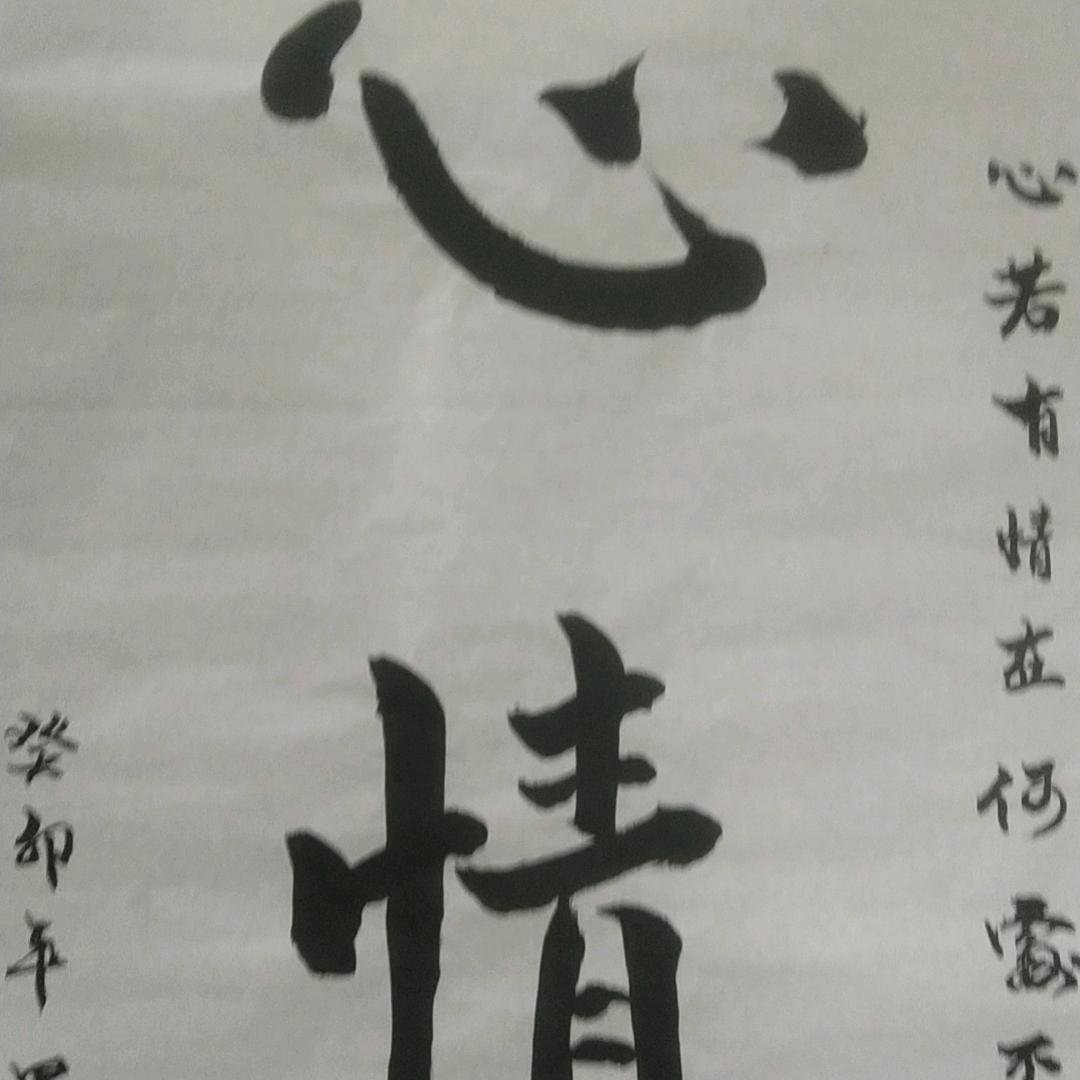 心若有情在何處不
心情
癸卯年四